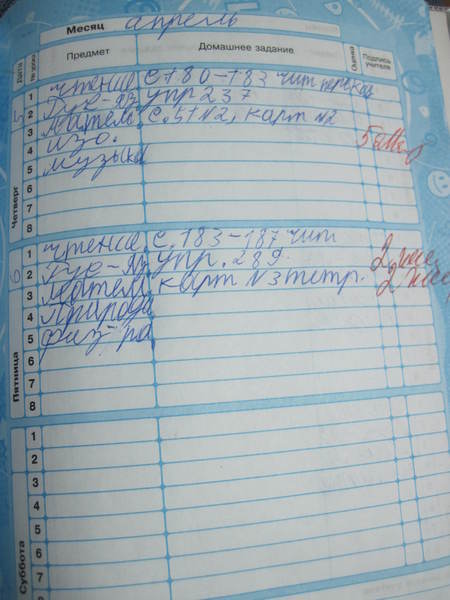 Месяц апрель
Дата № урока Предмет Домашнее задание Оценка Подпись учителя
5
Четверг
1 чтение с 180-183 чит
2 Рус-яз упр 237
3 Матем с. 51 №2, карт №2
4 изо.
5 музыка
6
7
8
6
Пятница
1 чтение с. 183-187 чит
2 Рус-яз упр. 289.
3 Матем карт №3 тетр.
4 Природа
5 физ-ра
6
7
8
Суббота
1
2
3
4
5
6
7